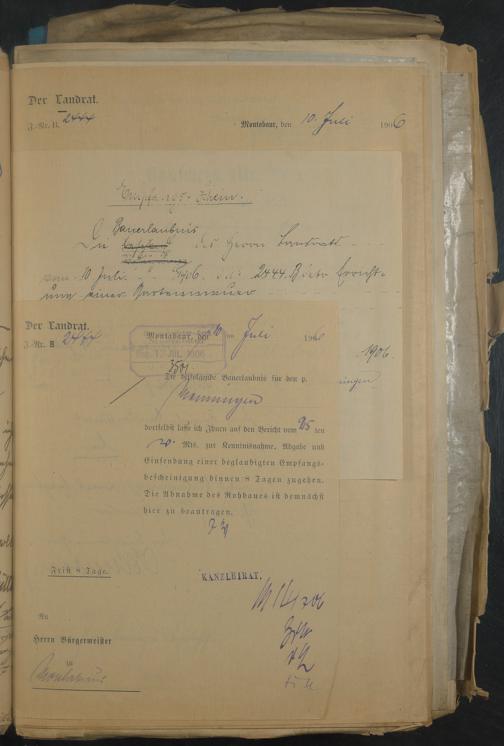 Der Landrat.
J.-Nr. B. 2444
Montabaur, den 10. Juli 1906
Empfangs-Schein.
Bauerlaubnis
des Herrn Landrats
vom 10 Juli 1906. 2444. B betr. Erricht-
ung einer Gartenmauer
1906.
Der Landrat.
J.-Nr. B 2444
Montabaur, den 10 ten Juli 1906
12. JUL. 1906
3501
Die erfolgende Bauerlaubnis für den p.
dortselbst lasse ich Ihnen auf den Bericht vom 25 ten
v. Mts. zur Kenntnisnahme, Abgabe und
Einsendung einer beglaubigten Empfangs-
bescheinigung binnen 8 Tagen zugehen.
Die Abnahme des Rohbaues ist demnächst
hier zu beantragen.
Frist 8 Tage.
KANZLEIRAT.
An
Herrn Bürgermeister
in
Montabaur